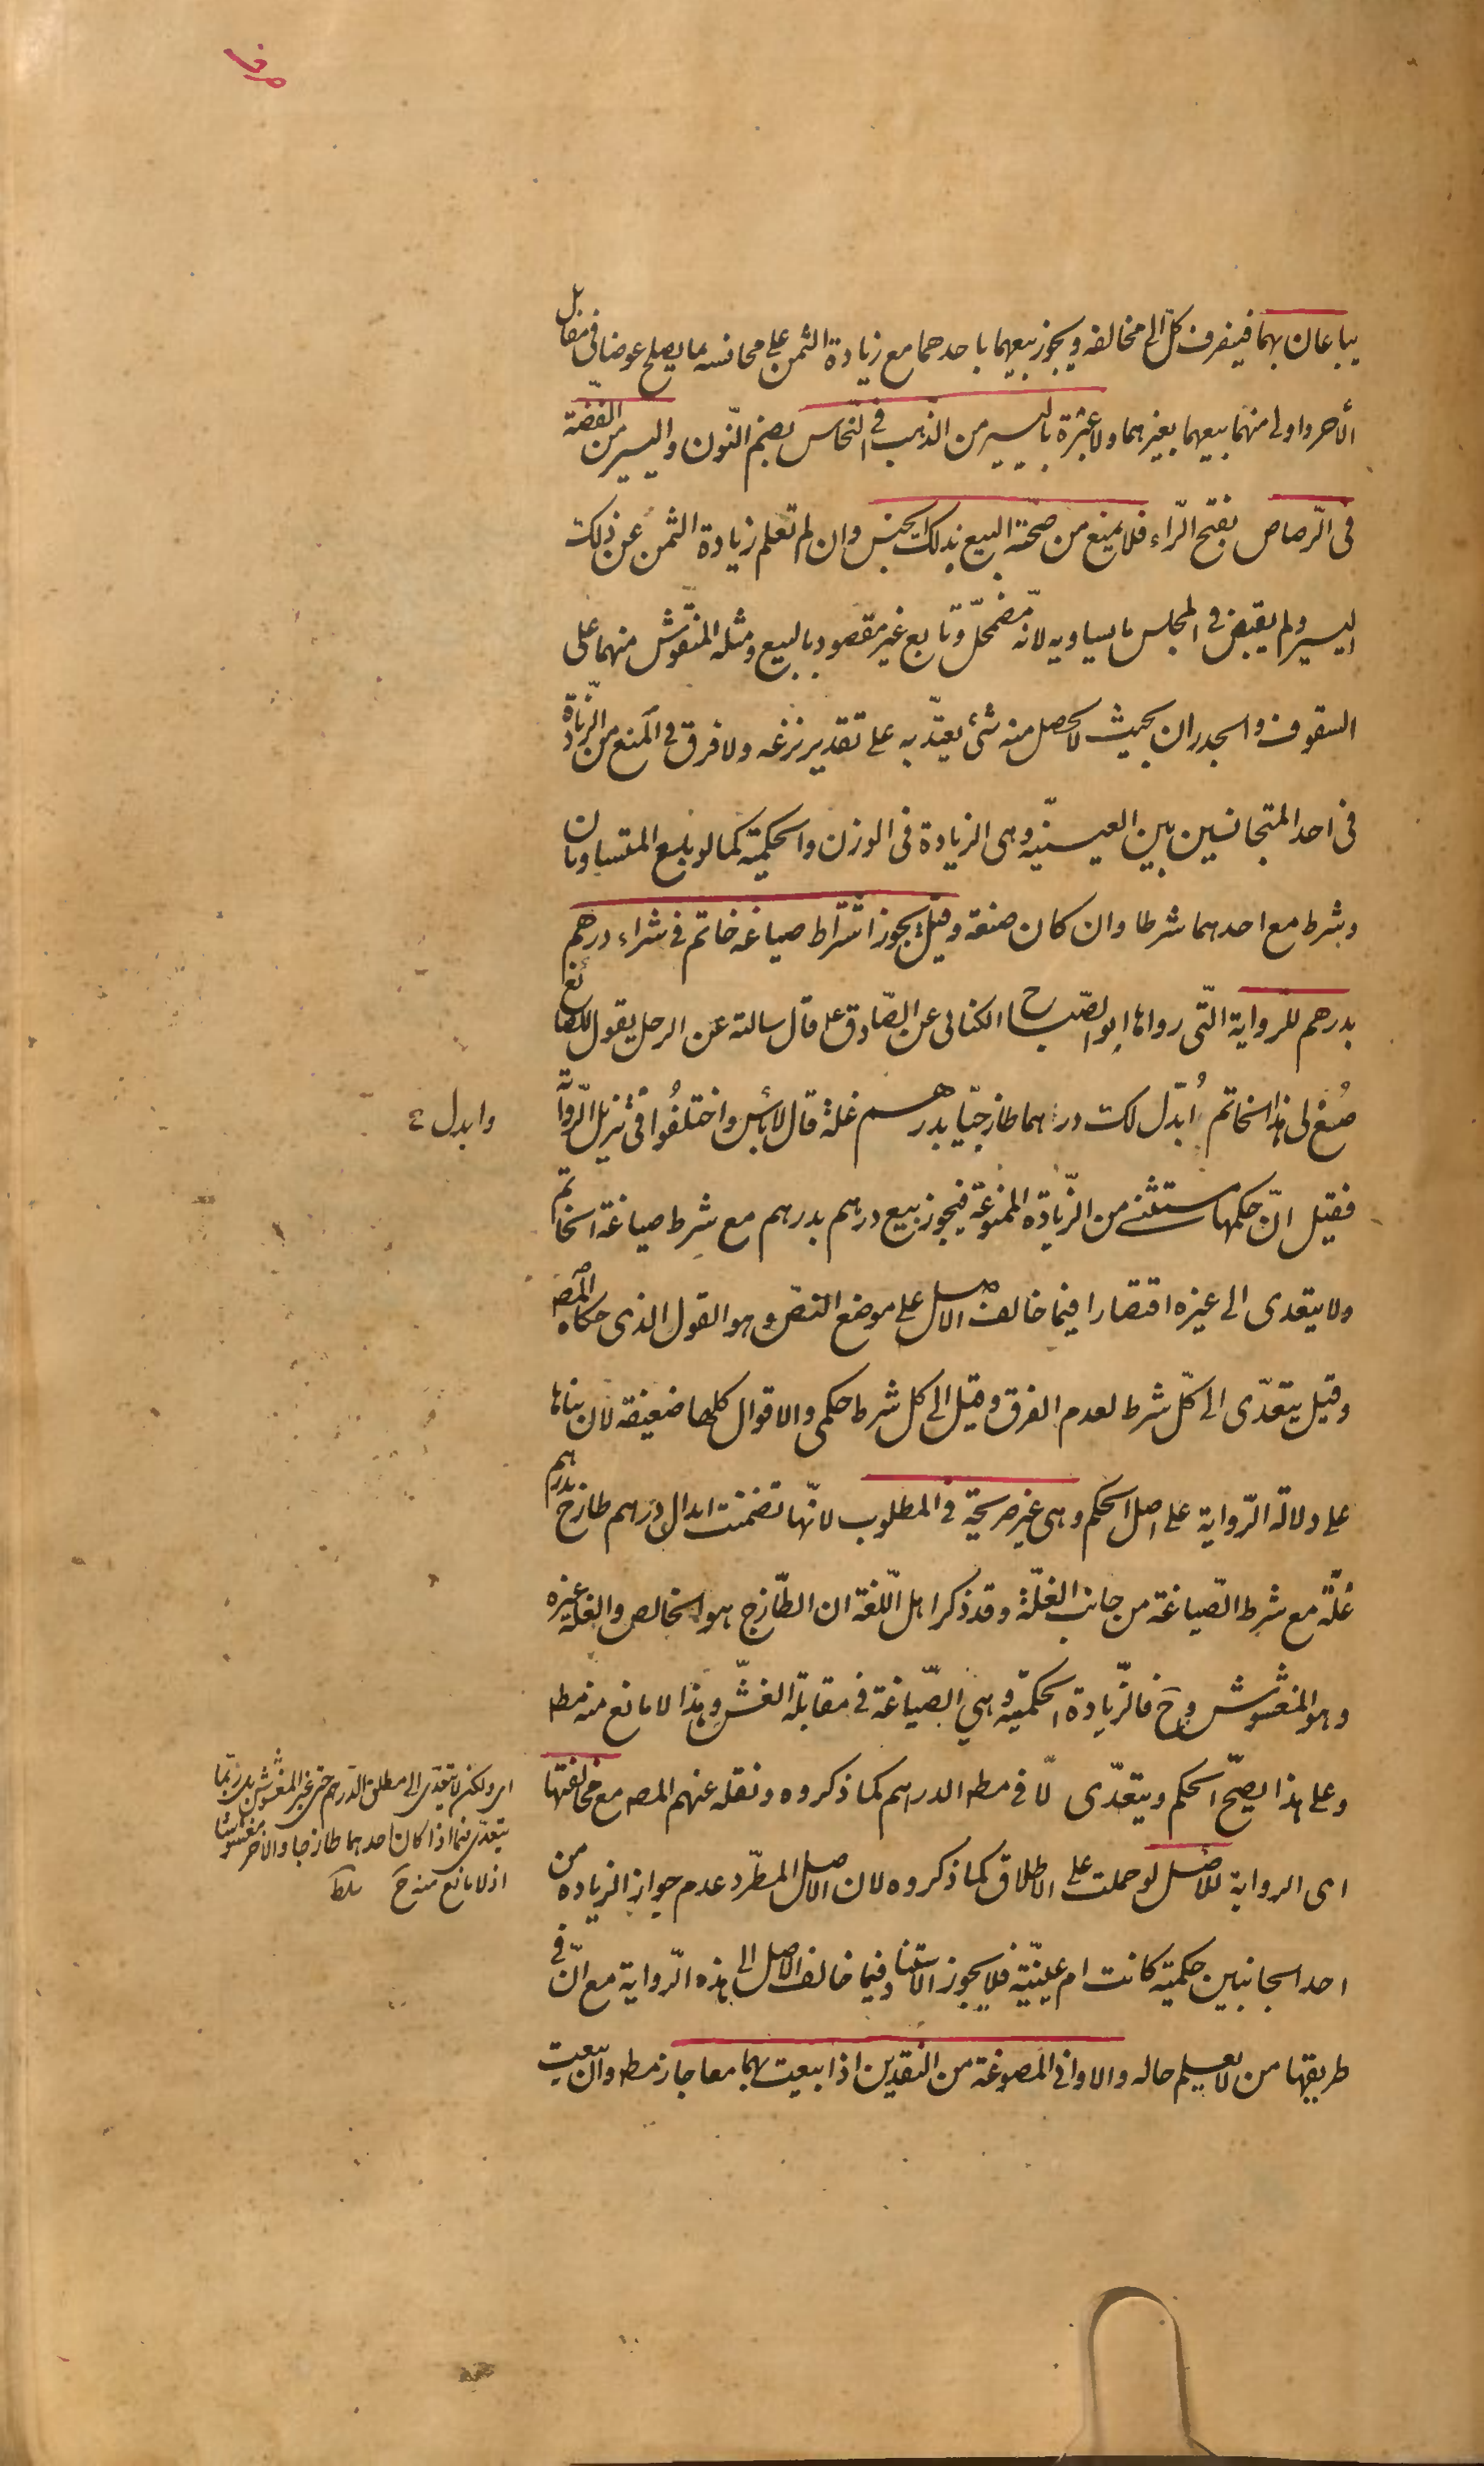 صرف
يباعان بهما فينصرف كل الى مخالفه ويجوز بيعهما باحدهما مع زيادة الثمن على مجانسه بما يصلح عوضا فى مقابل
الآخر واولى منهما بيعهما بغيرهما ولا عبرة باليسير من الذهب فى النّحاس بضم النّون واليسير من الفضّة
فى الرّصاص بفتح الرّاء فلا يمنع من صحّة البيع بذلك الجنس وان لم تعلم زيادة الثمن عن ذلك
اليسير ولم يقبض فى المجلس ما يساويه لانّه مضمحلّ وتابع غير مقصود بالبيع ومثله المنقوش منهما على
السقوف والجدران بحيث لا يحصل منه شئ يعتدّ به على تقدير نزعه ولا فرق فى المنع من الزّيادة
فى احد المتجانسين بين العينيّة وهى الزيادة فى الوزن والحكميّة كما لو بيع المتساويان
وشرط مع احدهما شرطا وان كان صنعة وقيل يجوز اشتراط صياغة خاتم فى شراء درهم
بدرهم للرّواية الّتى رواها ابو الصّباح الكنانى عن الصّادق ع قال سالته عن الرجل يقول للصائغ
صُغ لى هذا الخاتم اُبدّل لك درهما طازجيّا بدرهم غلة قال لا بأس واختلفُوا فى تنزيل الرّواية
وابدل ع
فقيل انّ حكمها مستثنى من الزّيادة الممنوعة فيجوز بيع درهم بدرهم مع شرط صياغة الخاتم
ولا يتعدى الى غيره اقتصارا فيما خالف الاصل على موضع النصّ وهو القول الذى حكاه المص
وقيل يتعدّى الى كلّ شرط لعدم الفرق وقيل الى كل شرط حكمى والاقوال كلها ضعيفة لان بناها
على دلالة الرّواية على اصل الحكم وهى غير صريحة فى المطلوب لانّها تضمنت ابدال درهم طازج بدرهم
غلّة مع شرط الصّياغة من جانب الغلّة وقد ذكر اهل اللّغة ان الطّازج هو الخالص والغلة غيره
وهو المغشوش وح فالزّيادة الحكميّة وهى الصّياغة فى مقابلة الغشّ وهذا لا مانع منه مط
وعلى هذا يصحّ الحكم ويتعدّى لا فى مط الدرهم كما ذكروه ونقله عنهم المص مع مخالفتها
اى ولكن لا يتعدّى الى مطلق الدّرهم حتى غير المغشوش بل ربّما
يتعدّى فيما اذا كان احدهما طازجا والآخر مغشوشا
اذ لا مانع منه ح
اى الرواية للاصل لو حملت على الاطلاق كما ذكروه لان الاصل المطّرد عدم جواز الزيادة من
احد الجانبين حكمية كانت ام عينيّة فلا يجوز الاستناد فيما خالف الاصل الى هذه الرّواية مع انّ فى
طريقها من لا يعلم حاله والاوانى المصوغة من النقدين اذا بيعت بهما معا جاز مط وان بيعت